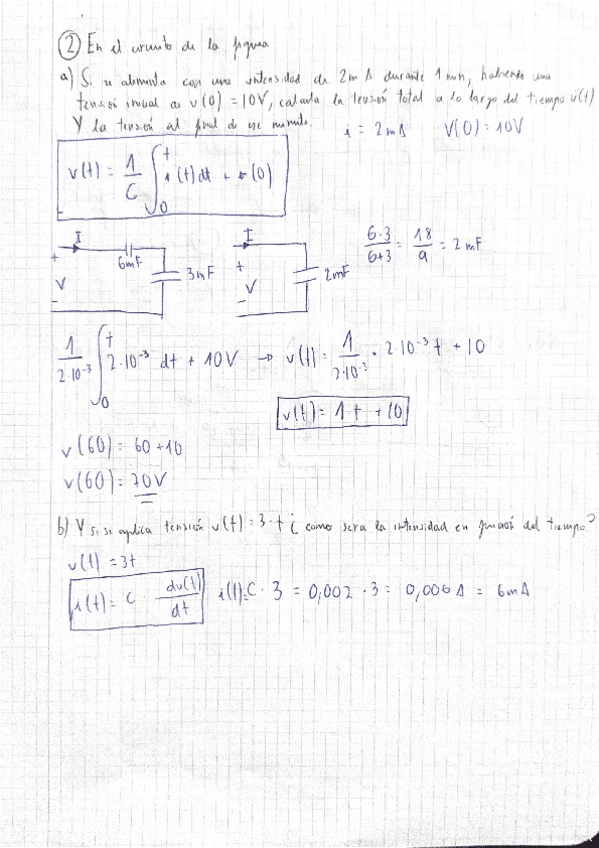 ② En el circuito de la figura
a) Si se alimenta con una intensidad de 2mA durante 1 min, habiendo una
tensión inicial de v(0) = 10V, calcula la tensión total a lo largo del tiempo v(t)
Y la tensión al final de ese minuto.
i = 2mA V(0) = 10V
v(t) = 1/C ∫₀ᵗ i(t) dt + v(0)
I
+
V
-
6mF
3mF
I
+
V
-
2mF
6·3/6+3 = 18/9 = 2 mF
1/2·10⁻³ ∫₀ᵗ 2·10⁻³ dt + 10V → v(t) = 1/2·10⁻³ · 2·10⁻³ t + 10
v(t) = 1t + 10
v(60) = 60 + 10
v(60) = 70V
b) Y si se aplica tensión v(t) = 3·t ¿ como sera la intensidad en función del tiempo?
v(t) = 3t
i(t) = C · dv(t)/dt i(t) = C · 3 = 0,002 · 3 = 0,006 A = 6mA